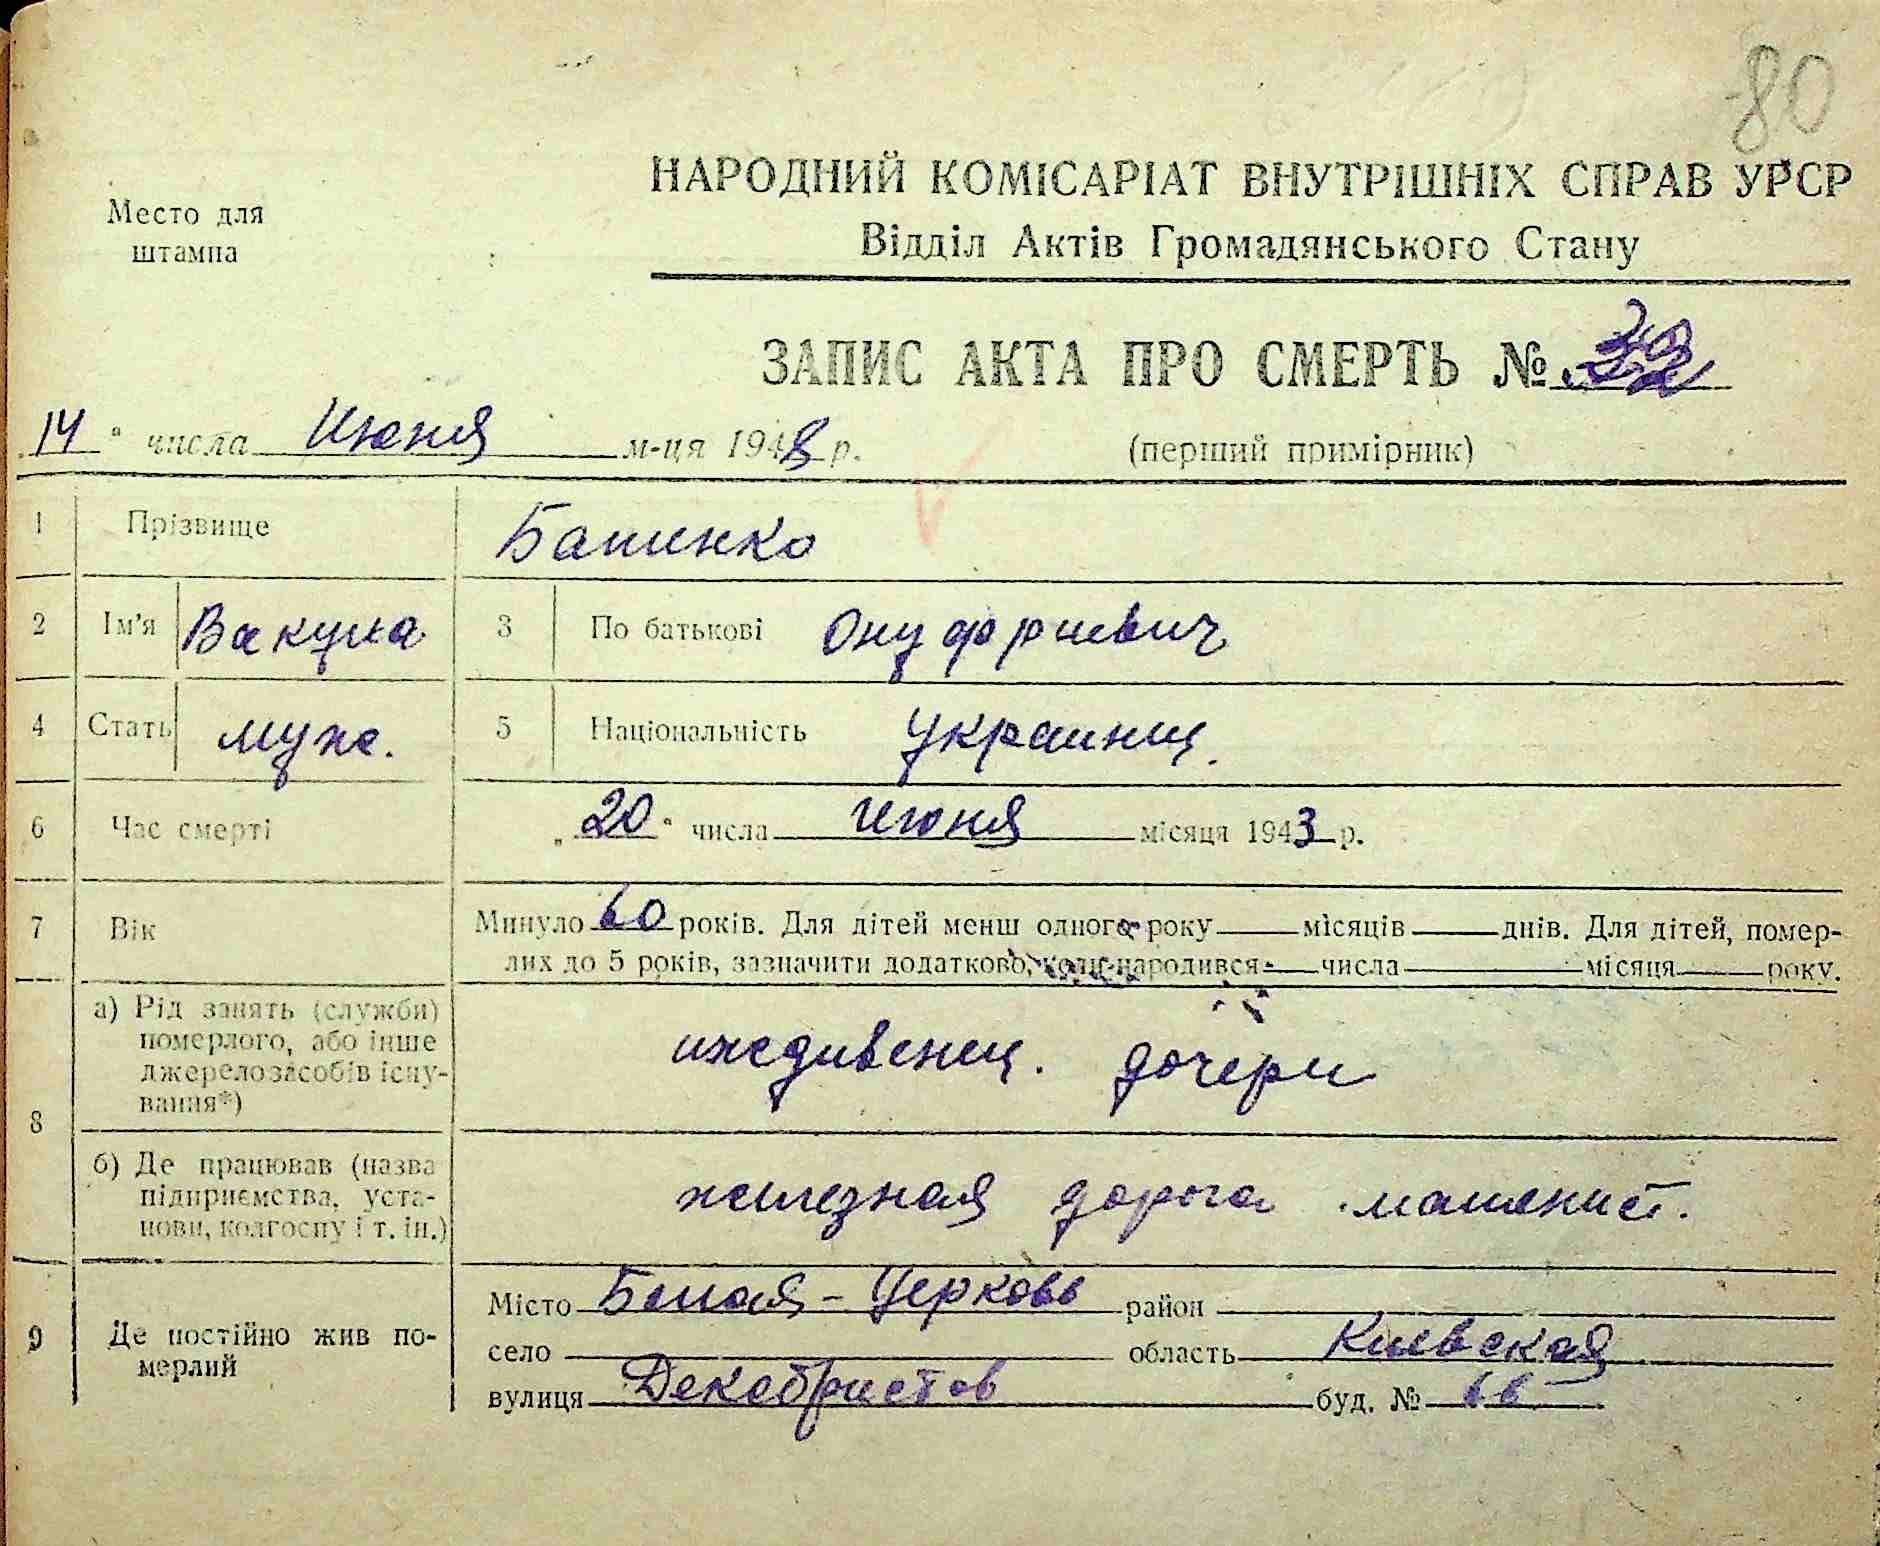 80
НАРОДНИЙ КОМІСАРІАТ ВНУТРІШНІХ СПРАВ УРСР
Место для
штампа
Відділ Актів Громадянського Стану
ЗАПИС АКТА ПРО СМЕРТЬ №
14 " числа Июня м-ця 1948 р.
(перший примірник)
1 Прізвище Батенко
2 Ім'я Вакула 3 По батькові Онуфриевич
4 Стать муж. 5 Національність украинец.
6 Час смерті „ 20 " числа Июня місяця 1943 р.
7 Вік Минуло 60 років. Для дітей менш одного року місяців днів. Для дітей, помер-
лих до 5 років, зазначити додатково, коли народився числа місяця року.
8
а) Рід занять (служби)
померлого, або інше
джерело засобів існу-
вання*)
иждивенец. дочери
б) Де працював (назва
підприємства, уста-
нови, колгоспу і т. ін.)
железная дорога машинист.
9 Де постійно жив по-
мерлий
Місто Белая-Церковь район
село область Киевская
вулиця Декабристов буд. № 66